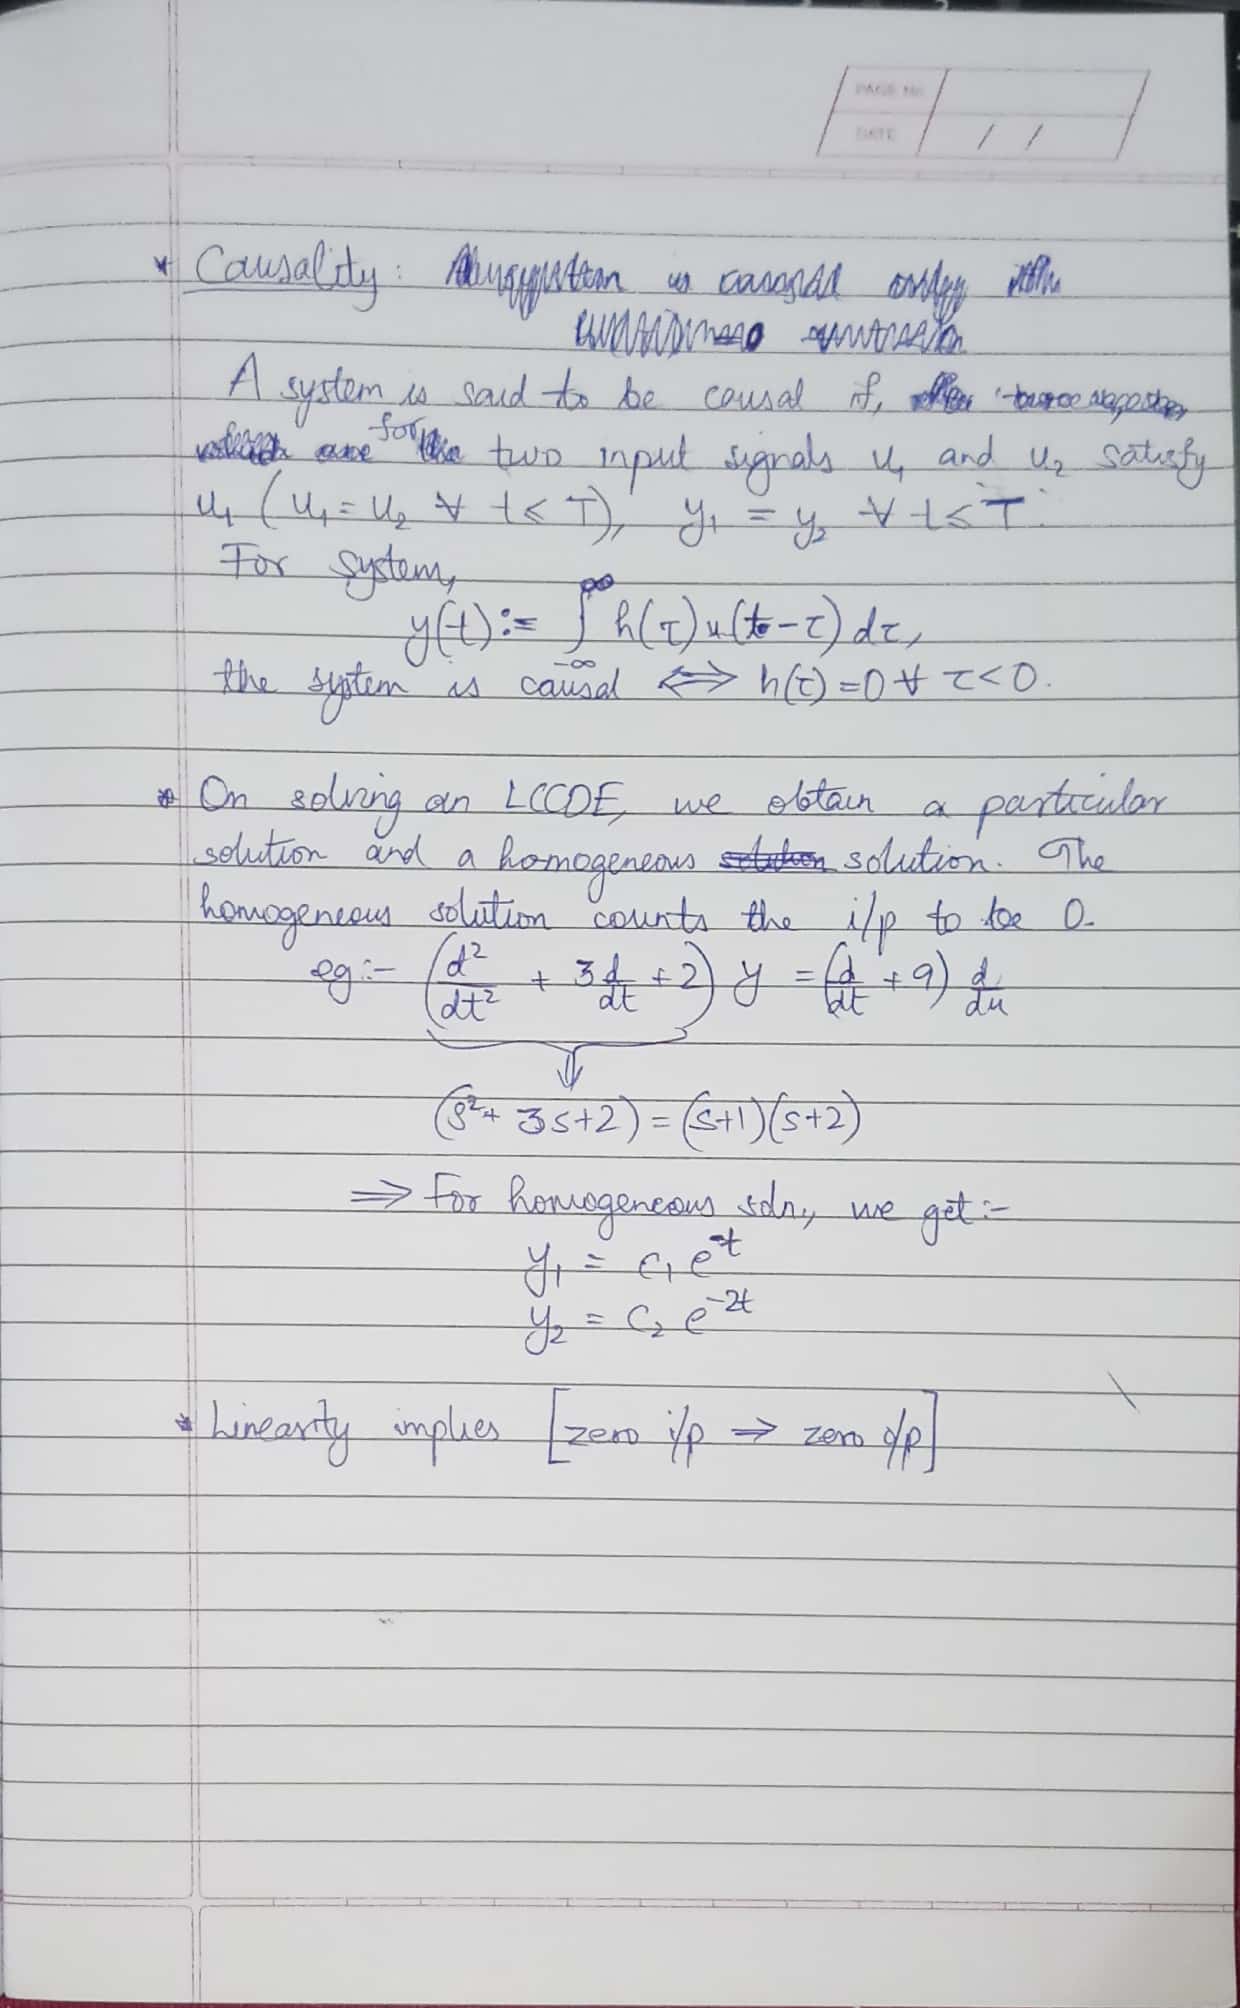 PAGE No.
DATE / /
* Causality:
A system is said to be causal if,
for two input signals u₁ and u₂ satisfy
u₁ (u₁ = u₂ ∀ t ≤ T), y₁ = y₂ ∀ t ≤ T.
For system,
y(t) := ∫_{-∞}^{∞} h(τ) u(t-τ) dτ,
the system is causal ⟺ h(τ) = 0 ∀ τ < 0.
* On solving an LCCDE, we obtain a particular
solution and a homogeneous solution. The
homogeneous solution counts the i/p to be 0.
eg:- (d²/dt² + 3d/dt + 2) y = (d/dt + 9) d/du
⇓
(s² + 3s + 2) = (s+1)(s+2)
⇒ For homogeneous soln., we get :-
y₁ = c₁ e^{-t}
y₂ = c₂ e^{-2t}
* Linearity implies [zero i/p ⇒ zero o/p]